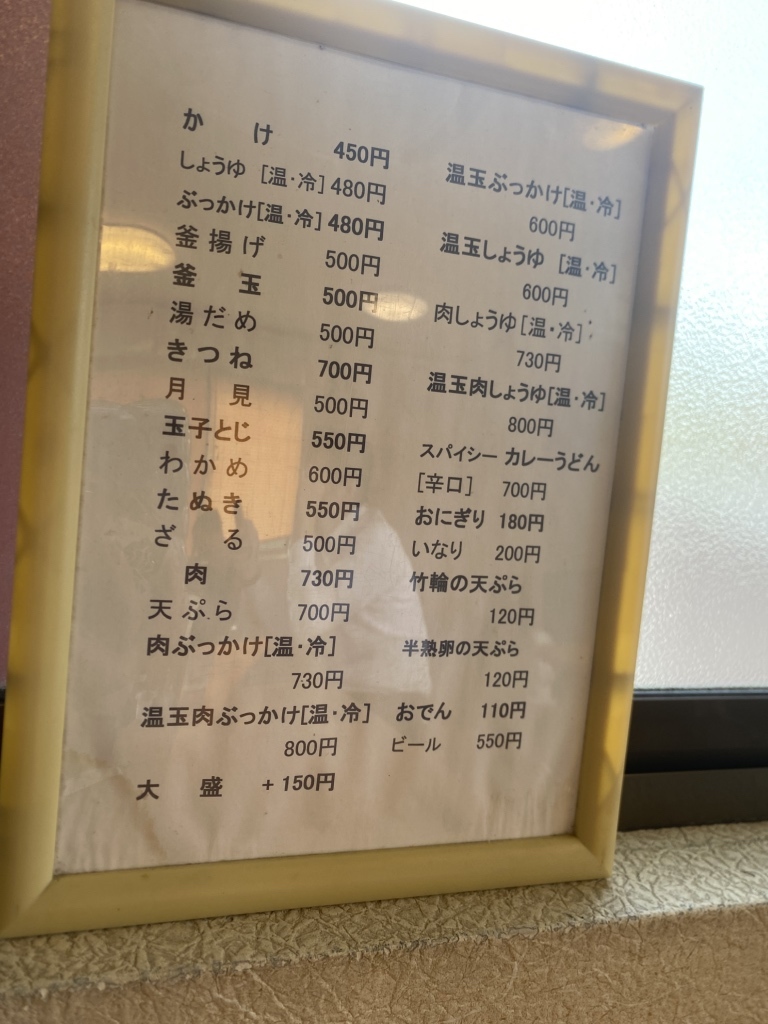 かけ 450円
しょうゆ [温・冷] 480円
ぶっかけ[温・冷] 480円
釜揚げ 500円
釜玉 500円
湯だめ 500円
きつね 700円
月見 500円
玉子とじ 550円
わかめ 600円
たぬき 550円
ざる 500円
肉 730円
天ぷら 700円
肉ぶっかけ[温・冷]
730円
温玉肉ぶっかけ[温・冷]
800円
大盛 +150円
温玉ぶっかけ[温・冷]
600円
温玉しょうゆ [温・冷]
600円
肉しょうゆ[温・冷]
730円
温玉肉しょうゆ[温・冷]
800円
スパイシー カレーうどん
[辛口] 700円
おにぎり 180円
いなり 200円
竹輪の天ぷら
120円
半熟卵の天ぷら
120円
おでん 110円
ビール 550円